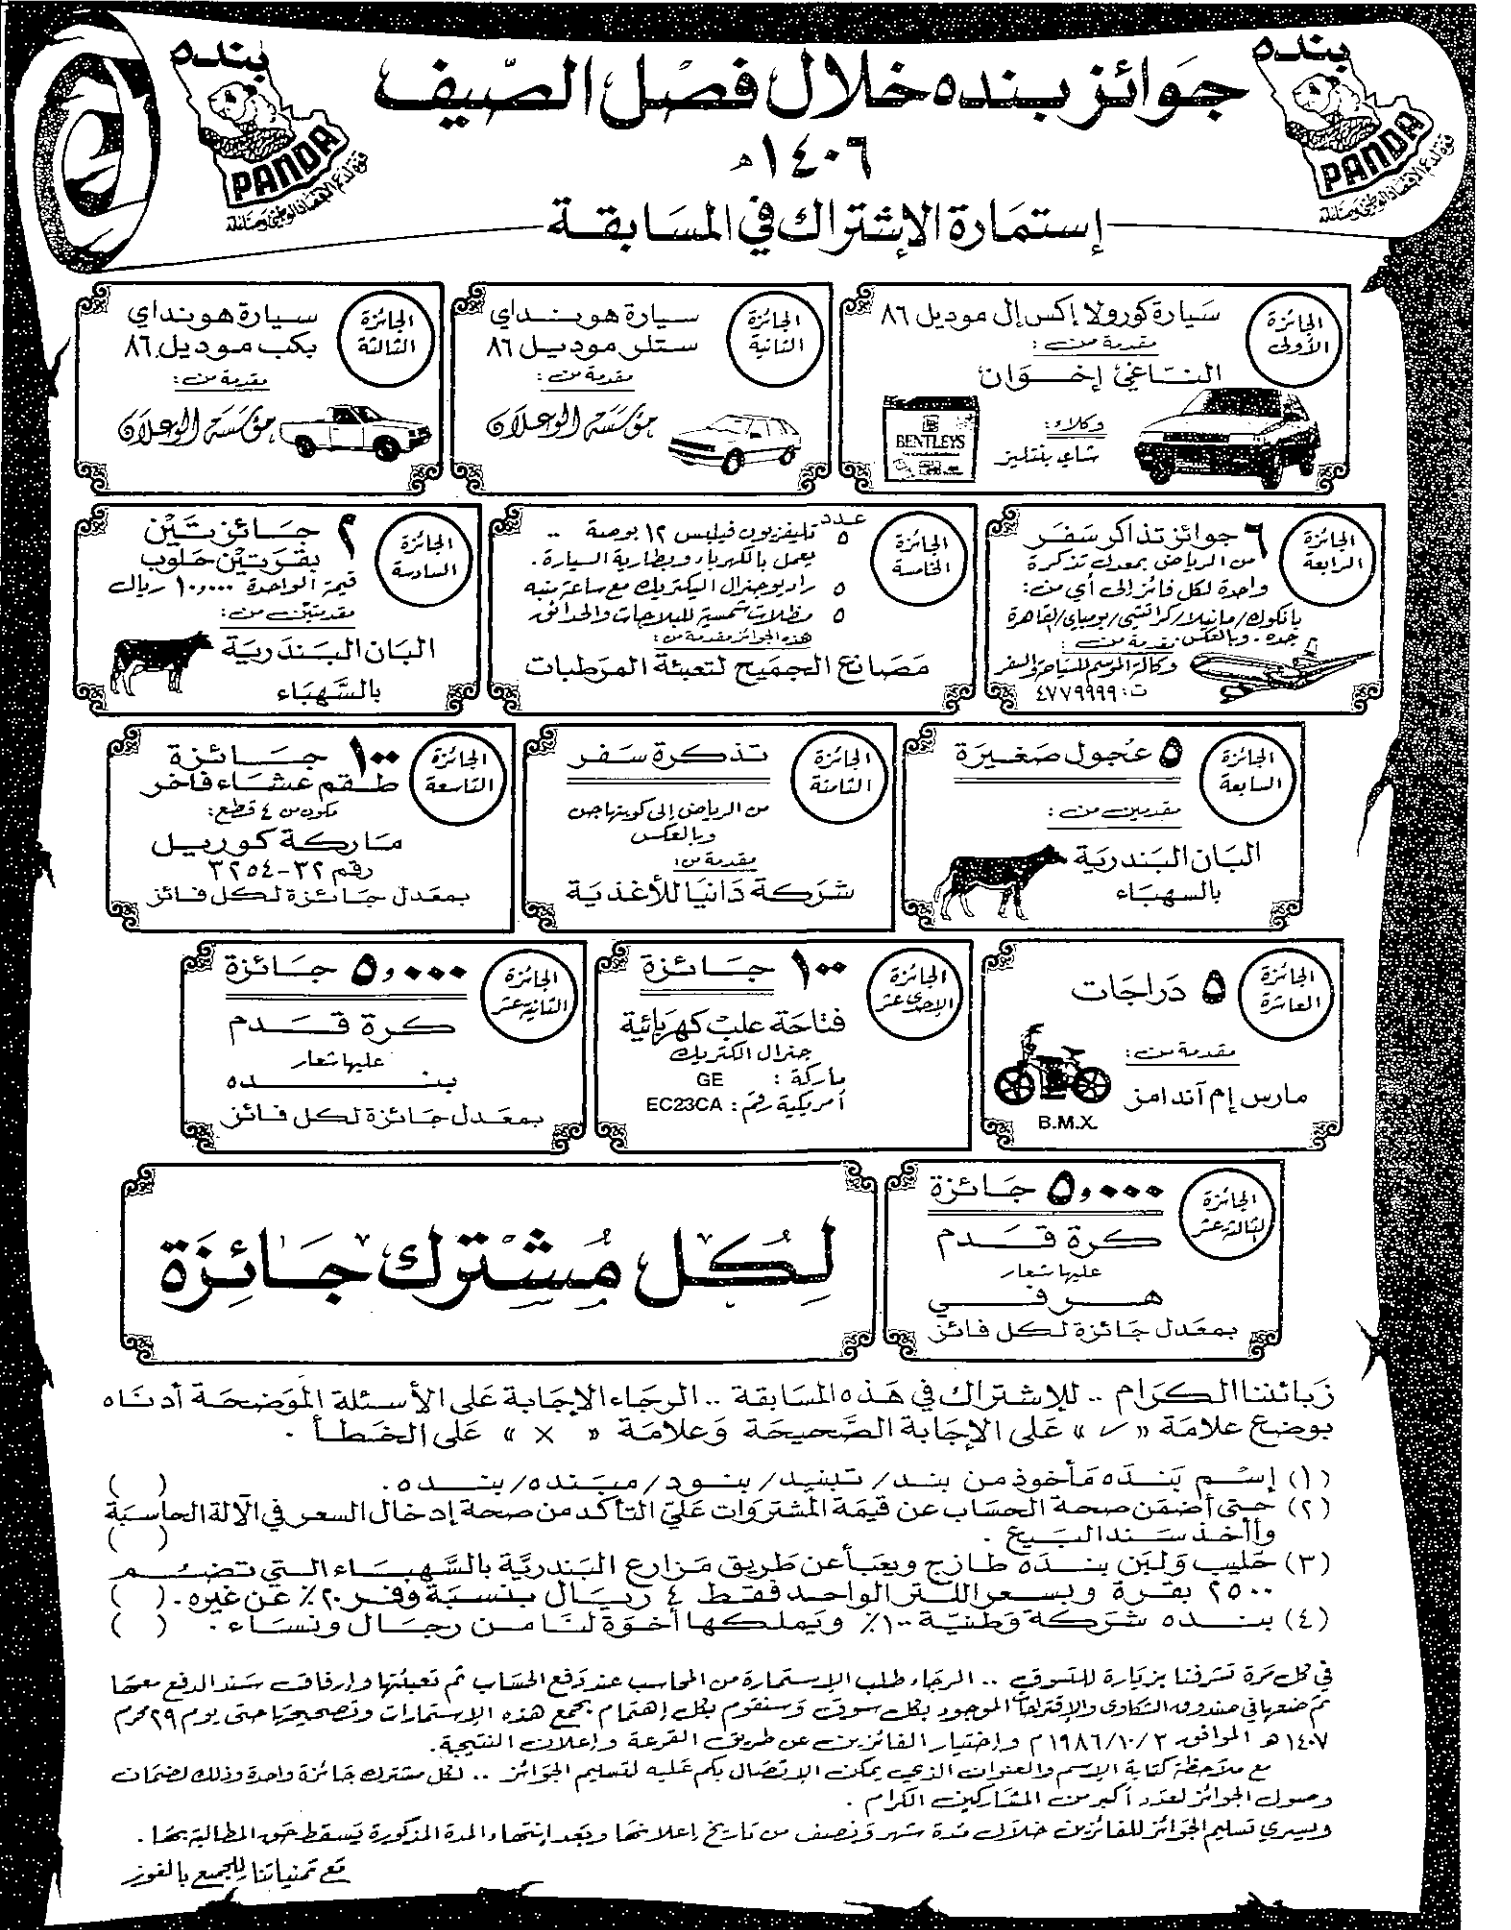 بنده
PANDA
بنده
PANDA
جوائز بنده خلال فصل الصيف
١٤٠٦هـ
إستمارة الإشتراك في المسابقة
الجائزة الأولى
سيارة كورولا إكس إل موديل ٨٦
مقدمة من:
الناغي إخوان
وكلاء:
شاي بنتليز
BENTLEYS
الجائزة الثانية
سيارة هونداي
ستلر موديل ٨٦
مقدمة من:
مؤسسة الوعلان
الجائزة الثالثة
سيارة هونداي
بكب موديل ٨٦
مقدمة من:
مؤسسة الوعلان
الجائزة الرابعة
٦ جوائز تذاكر سفر
من الرياض بمعدل تذكرة
واحدة لكل فائز إلى أي من:
بانكوك/مانيلا/كراتشي/بومباي/القاهرة
جده. وبالعكس مقدمة من:
وكالة الموسم للسياحة والسفر
ت: ٤٧٧٩٩٩٩
الجائزة الخامسة
عدد
٥ تليفزيون فيليبس ١٢ بوصة ..
يعمل بالكهرباء وبطارية السيارة.
٥ راديو جنرال اليكتريك مع ساعة منبه
٥ مظلات شمسية للبلاجات والحدائق
هذه الجوائز مقدمة من:
مصانع الجميح لتعبئة المرطبات
الجائزة السادسة
٢ جائزتين
بقرتين حلوب
قيمة الواحدة ١٠,٠٠٠ ريال
مقدمتين من:
البان البندرية
بالسهباء
الجائزة السابعة
٥ عجول صغيرة
مقدمين من:
البان البندرية
بالسهباء
الجائزة الثامنة
تذكرة سفر
من الرياض إلى كوبنهاجن
وبالعكس
مقدمة من:
شركة دانيا للأغذية
الجائزة التاسعة
١٠٠ جائزة
طقم عشاء فاخر
مكون من ٤ قطع:
ماركة كوريل
رقم ٣٢-٣٢٥٤
بمعدل جائزة لكل فائز
الجائزة العاشرة
٥ دراجات
مقدمة من:
مارس إم آند امز
B.M.X.
الجائزة الإحدى عشر
١٠٠ جائزة
فتاحة علب كهربائية
جنرال الكتريك
ماركة: GE
أمريكية رقم: EC23CA
الجائزة الثانية عشر
٥٠,٠٠٠ جائزة
كرة قدم
عليها شعار
بنده
بمعدل جائزة لكل فائز
الجائزة الثالثة عشر
٥٠,٠٠٠ جائزة
كرة قدم
عليها شعار
هرفي
بمعدل جائزة لكل فائز
لكل مشترك جائزة
زبائننا الكرام .. للإشتراك في هذه المسابقة .. الرجاء الإجابة على الأسئلة الموضحة أدناه
بوضع علامة « ✓ » على الإجابة الصحيحة وعلامة « × » على الخطأ .
(١) إسم بنده مأخوذ من بند/ تبنيد/ بنود/ مبنده/ بنده. ( )
(٢) حتى أضمن صحة الحساب عن قيمة المشتروات علي التأكد من صحة إدخال السعر في الآلة الحاسبة
وأأخذ سند البيع . ( )
(٣) حليب ولبن بنده طازج ويعبأ عن طريق مزارع البندرية بالسهباء التي تضم
٢٥٠٠ بقرة وبسعر اللتر الواحد فقط ٤ ريال بنسبة وفر ٢٠٪ عن غيره. ( )
(٤) بنده شركة وطنية ١٠٠٪ ويملكها أخوة لنا من رجال ونساء . ( )
في كل مرة تشرفنا بزيارة للتسوق .. الرجاء طلب الإستمارة من المحاسب عند دفع الحساب ثم تعبئتها وإرفاق سند الدفع معها
ثم ضعها في صندوق الشكاوى والإقتراحات الموجود بكل سوق وسنقوم بكل إهتمام بجمع هذه الإستمارات وتصحيحها حتى يوم ٢٩ محرم
١٤٠٧هـ الموافق ١٩٨٦/١٠/٢م وإختيار الفائزين عن طريق القرعة وإعلان النتيجة.
مع ملاحظة كتابة الإسم والعنوان الذي يمكن الإتصال بكم عليه لتسليم الجوائز .. لكل مشترك جائزة واحدة وذلك لضمان
وصول الجوائز لعدد أكبر من المشاركين الكرام .
ويسري تسليم الجوائز للفائزين خلال مدة شهر ونصف من تاريخ إعلانها وبعد إنتهاء المدة المذكورة يسقط حق المطالبة بها .
مع تمنياتنا للجميع بالفوز